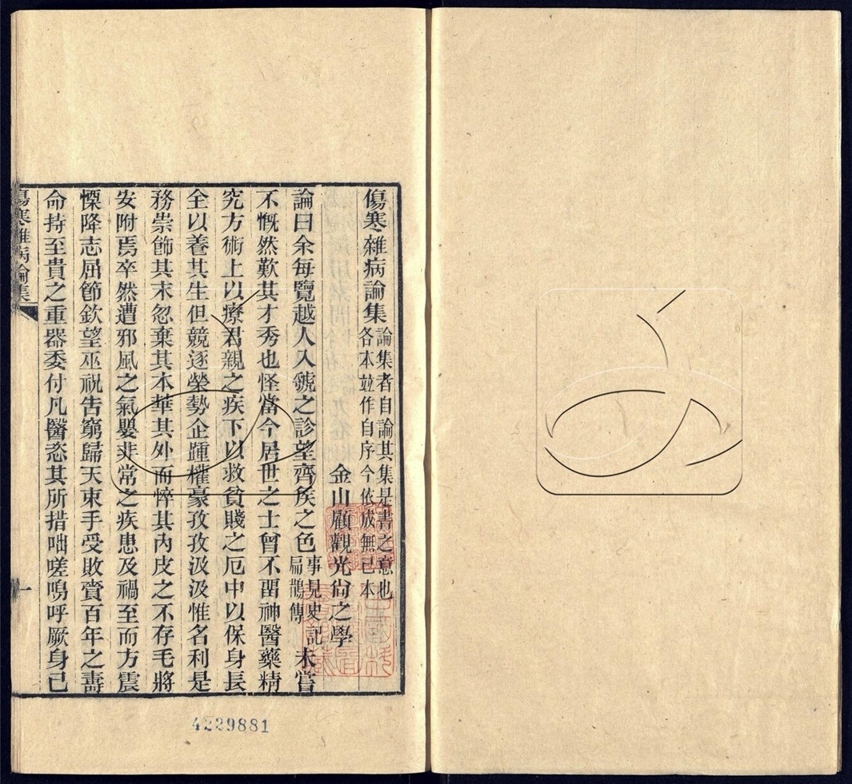 傷寒雜病論集
論集者自論其集是書之意也
各本並作自序今依成無己本
金山顧觀光尚之學
論曰余每覽越人入虢之診望齊矦之色事見史記扁鵲傳未嘗
不慨然歎其才秀也怪當今居世之士曾不畱神醫藥精
究方術上以療君親之疾下以救貧賤之厄中以保身長
全以養其生但競逐榮勢企踵權豪孜孜汲汲惟名利是
務崇飾其末忽棄其本華其外而悴其內皮之不存毛將
安附焉卒然遭邪風之氣嬰非常之疾患及禍至而方震
慄降志屈節欽望巫祝告窮歸天束手受敗賫百年之壽
命持至貴之重器委付凡醫恣其所措咄嗟嗚呼厥身已
傷寒雜病論集
一
4229881